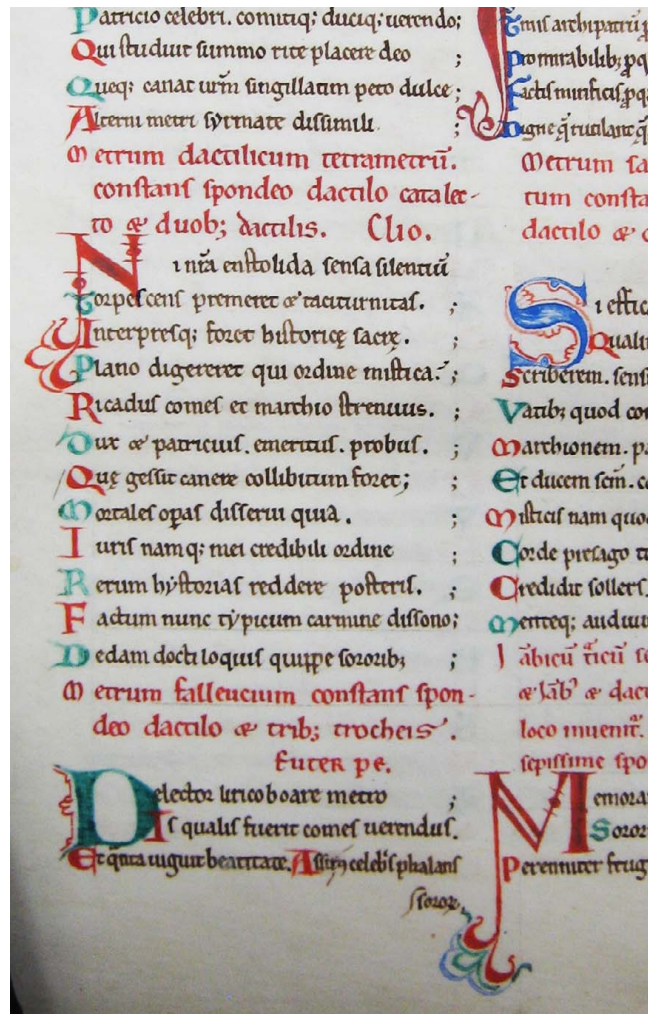 Patricio celebri. comitiq; duciq; uerendo;
Qui studuit summo rite placere deo ;
Queq; canat urm̄ singillatim peto dulce;
Alterni metri syrmate dissimili ;
Metrum dactilicum tetrametrū.
constans spondeo dactilo catalec-
to & duob; dactilis. Clio.
Ni nr̄a enstolida sensa silentiū
Torpescens premeret & taciturnitas. ;
Interpresq; foret historicę sacrę. ;
Plano digereret qui ordine mistica. ;
Ricadus comes et marchio strenuus. ;
Dux & patricius. emeritus. probus. ;
Quę gessit canere collibitum foret; ;
Mortales opas disserui quia. ;
Iuris namq; mei credibili ordine ;
Rerum hystorias reddere posteris. ;
Factum nunc typicum carmine dissono;
Dedam docti loquis quippe sororib; ;
Metrum falleucium constans spon-
deo dactilo & trib; trocheis.
Euter pe.
Delector lirico boare metro ;
Is qualis fuerit comes uerendus.
Et qn̄ta uiguit beatitate. celebs phalans
Tmis archipatrū
Pro mirabilib;
Factis munificis
Digne
Metrum sa
tum consta
dactilo & c
Si effic
Quali
Scriberem. sens
Vatib; quod con
Marchionem. pa
Et ducem sem̄. c
Misticis nam quo
Corde presago t
Credidit sollers.
Menteq; audiui
loco inuenit.
sepissime spo
Memora
Soror
Perenniter frug